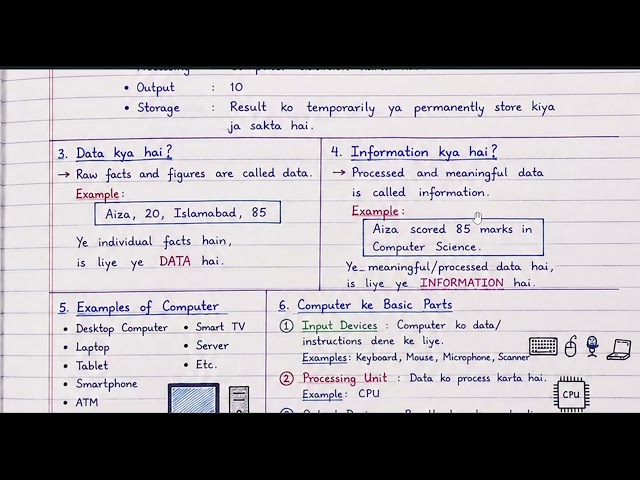 • Output : 10
• Storage : Result ko temporarily ya permanently store kiya
ja sakta hai.
3. Data kya hai?
→ Raw facts and figures are called data.
Example:
Aiza, 20, Islamabad, 85
Ye individual facts hain,
is liye ye DATA hai.
4. Information kya hai?
→ Processed and meaningful data
is called information.
Example:
Aiza scored 85 marks in
Computer Science.
Ye meaningful/processed data hai,
is liye ye INFORMATION hai.
5. Examples of Computer
• Desktop Computer
• Laptop
• Tablet
• Smartphone
• ATM
• Smart TV
• Server
• Etc.
6. Computer ke Basic Parts
① Input Devices : Computer ko data/
instructions dene ke liye.
Examples: Keyboard, Mouse, Microphone, Scanner
② Processing Unit : Data ko process karta hai.
Example: CPU
CPU